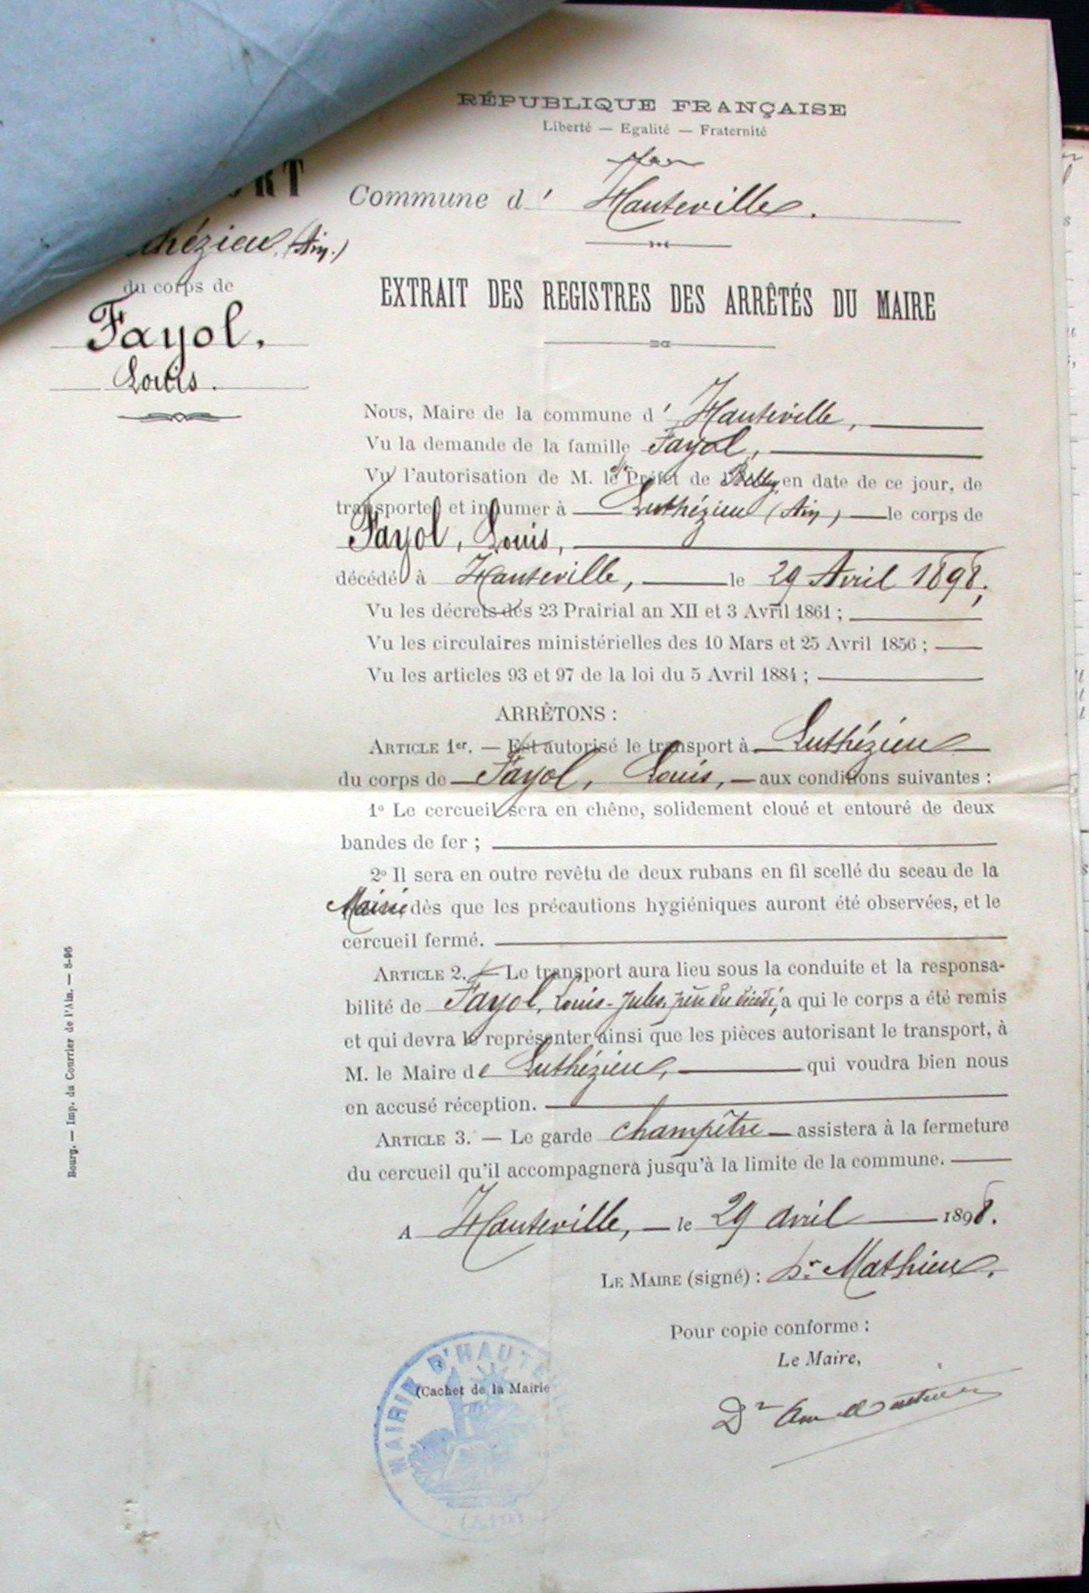 RÉPUBLIQUE FRANÇAISE
Liberté — Egalité — Fraternité
Commune d' Hauteville.
EXTRAIT DES REGISTRES DES ARRÊTÉS DU MAIRE
ORT
thézieu, (Ain.)
du corps de
Fayol,
Louis.
Nous, Maire de la commune d' Hauteville,
Vu la demande de la famille Fayol,
Vu l'autorisation de M. le Préfet de Belley en date de ce jour, de
transporter et inhumer à Luthézieu (Ain) le corps de
Fayol, Louis,
décédé à Hauteville, le 29 Avril 1898;
Vu les décrets des 23 Prairial an XII et 3 Avril 1861 ;
Vu les circulaires ministérielles des 10 Mars et 25 Avril 1856 ;
Vu les articles 93 et 97 de la loi du 5 Avril 1884 ;
ARRÊTONS :
ARTICLE 1er. — Est autorisé le transport à Luthézieu
du corps de Fayol, Louis, aux conditions suivantes :
1º Le cercueil sera en chêne, solidement cloué et entouré de deux
bandes de fer ;
2º Il sera en outre revêtu de deux rubans en fil scellé du sceau de la
Mairie dès que les précautions hygiéniques auront été observées, et le
cercueil fermé.
ARTICLE 2. — Le transport aura lieu sous la conduite et la responsa-
bilité de Fayol, Louis-Jules, à qui le corps a été remis
et qui devra le représenter ainsi que les pièces autorisant le transport, à
M. le Maire de Luthézieu, qui voudra bien nous
en accusé réception.
ARTICLE 3. — Le garde champêtre assistera à la fermeture
du cercueil qu'il accompagnera jusqu'à la limite de la commune.
A Hauteville, le 29 avril 1898.
LE MAIRE (signé) : Dr. Mathieu.
Pour copie conforme :
Le Maire,
Dr
(Cachet de la Mairie
MAIRIE D'HAUTE
(AIN)
Bourg. — Imp. du Courrier de l'Ain. — 8-96